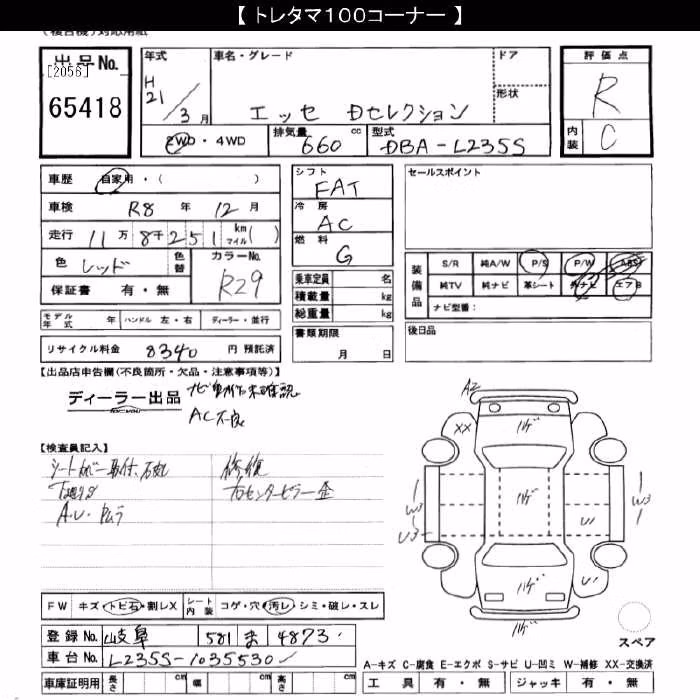 【 トレタマ100コーナー 】
出品No.
[2056]
65418
年式
H 21 / 3 月
車名・グレード
エッセ Dセレクション
ドア
形状
評価点
R
内装
C
2WD・4WD
排気量 660 cc
型式 DBA-L235S
車歴 自家用・( )
車検 R8 年 12 月
走行 11万 8千251 km マイル( )
色 レッド
色替
カラーNo. R29
保証書 有・無
シフト
FAT
冷房
AC
燃料
G
乗車定員 名
積載量 kg
総重量 kg
書類期限
月 日
セールスポイント
装備品
S/R 純A/W P/S P/W ABS
純TV 純ナビ 革シート 外ナビ エアB
ナビ型番:
後日品
モデル年式 年 ハンドル 左・右 ディーラー・並行
リサイクル料金 8340 円 預託済
【出品店申告欄(不良箇所・欠品・注意事項等)】
ディーラー出品
ナビ動作未確認
AC不良
【検査員記入】
修復
右センターピラー歪
下廻りS
FW キズ・トビ石・割レX シート内装 コゲ・穴・汚レ・シミ・破レ・スレ
登録No. 岐阜 581 ま 4873
車台No. L235S-1035530
車庫証明用 長さ cm 幅 cm 高さ cm
A2
XX
W3
U3
W3
U1
U1
スペア
A-キズ C-腐食 E-エクボ S-サビ U-凹ミ W-補修 XX-交換済
工具 有・無 ジャッキ 有・無